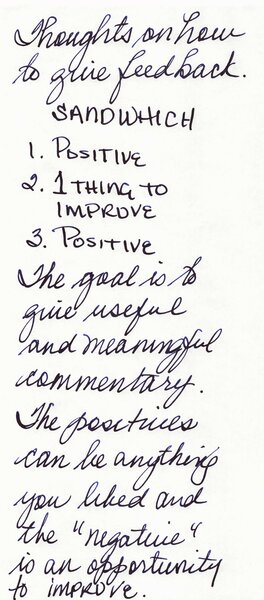 Thoughts on how
to give feedback.
SANDWHICH
1. POSITIVE
2. 1 THING TO
IMPROVE
3. POSITIVE
The goal is to
give useful
and meaningful
commentary.
The positives
can be anything
you liked and
the "negative"
is an opportunity
to IMPROVE.